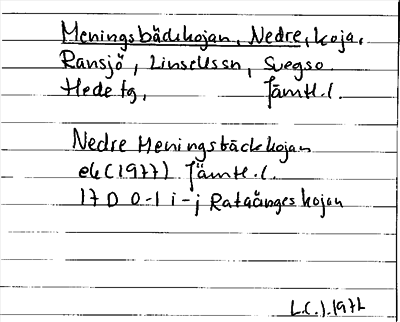 Meningsbäckskojan, Nedre, koja,
Ransjö, Linsellssn, Svegso
Hede tg, Jämtl.l.
Nedre Meningsbäckskojan
ek (1977) Jämtl.l.
17 D 0-1 i-j Rataängeskojan
L.C.J. 1972